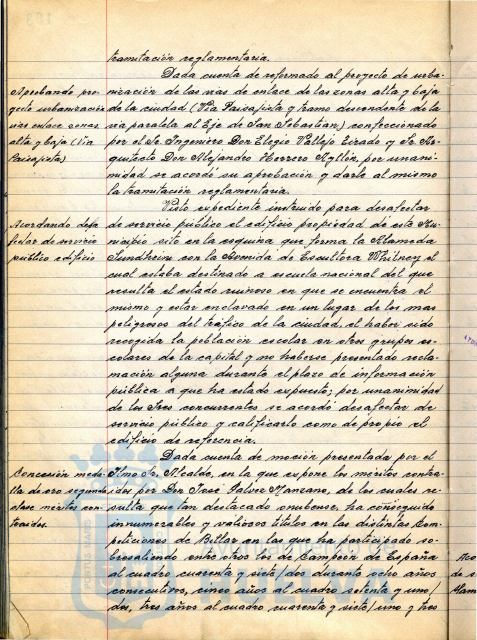 tramitación reglamentaria.
Dada cuenta de reformado al proyecto de urba-
Aprobando pro-
yecto urbanización
vías enlace zonas
alta y baja (Vía
Paisajista)
nización de las vías de enlace de las zonas alta y baja
de la ciudad (Vía Paisajista y tramo descendente de la
vía paralela al Eje de San Sebastián) confeccionado
por el Sr. Ingeniero Don Elegio Vallejo Eirado y Sr. Ar-
quitecto Don Alejandro Herrero Ayllón, por unani-
midad se acordó su aprobación y darle al mismo
la tramitación reglamentaria.
Visto expediente instruido para desafectar
Acordando desa-
fectar de servicio
público edificio
de servicio público el edificio propiedad de este Mu-
nicipio sito en la esquina que forma la Alameda
Sundheim con la Avenida de Escultora Whitney el
cual estaba destinado a escuela nacional del que
resulta el estado ruinoso en que se encuentra el
mismo y estar enclavado en un lugar de los mas
peligrosos del tráfico de la ciudad, el haber sido
recogida la población escolar en otros grupos es-
colares de la capital y no haberse presentado recla-
mación alguna durante el plazo de información
pública a que ha estado expuesto; por unanimidad
de los Sres concurrentes se acordó desafectar de
servicio público y calificarlo como de propio el
edificio de referencia.
Dada cuenta de moción presentada por el
Concesión meda-
lla de oro segunda
clase méritos con-
traidos.
Ilmo Sr. Alcalde, en la que expone los méritos contra-
idos por Don José Galvez Manzano, de los cuales re-
sulta que tan destacado onubense, ha conseguido
innumerables y valiosos títulos en las distintas Com-
peticiones de Billar en las que ha participado so-
bresaliendo entre otros los de Campeon de España
al cuadro cuarenta y siete/dos durante ocho años
consecutivos, cinco años al cuadro setenta y uno/
dos, tres años al cuadro cuarenta y siete/uno y tres
Aco
de s
Alam
PORTUS MARIS